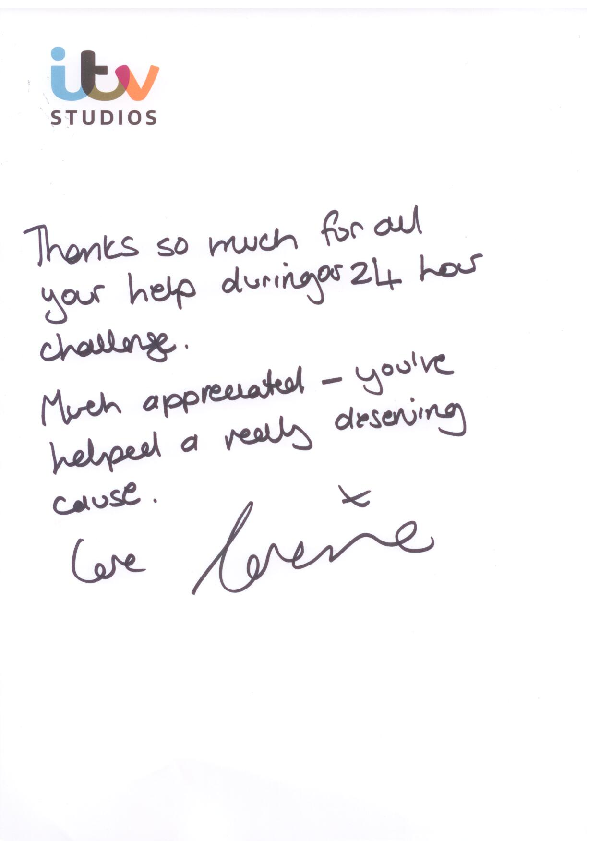 itv
STUDIOS
Thanks so much for all
your help during our 24 hour
challenge.
Much appreciated – you've
helped a really deserving
cause.
Love Lorraine x